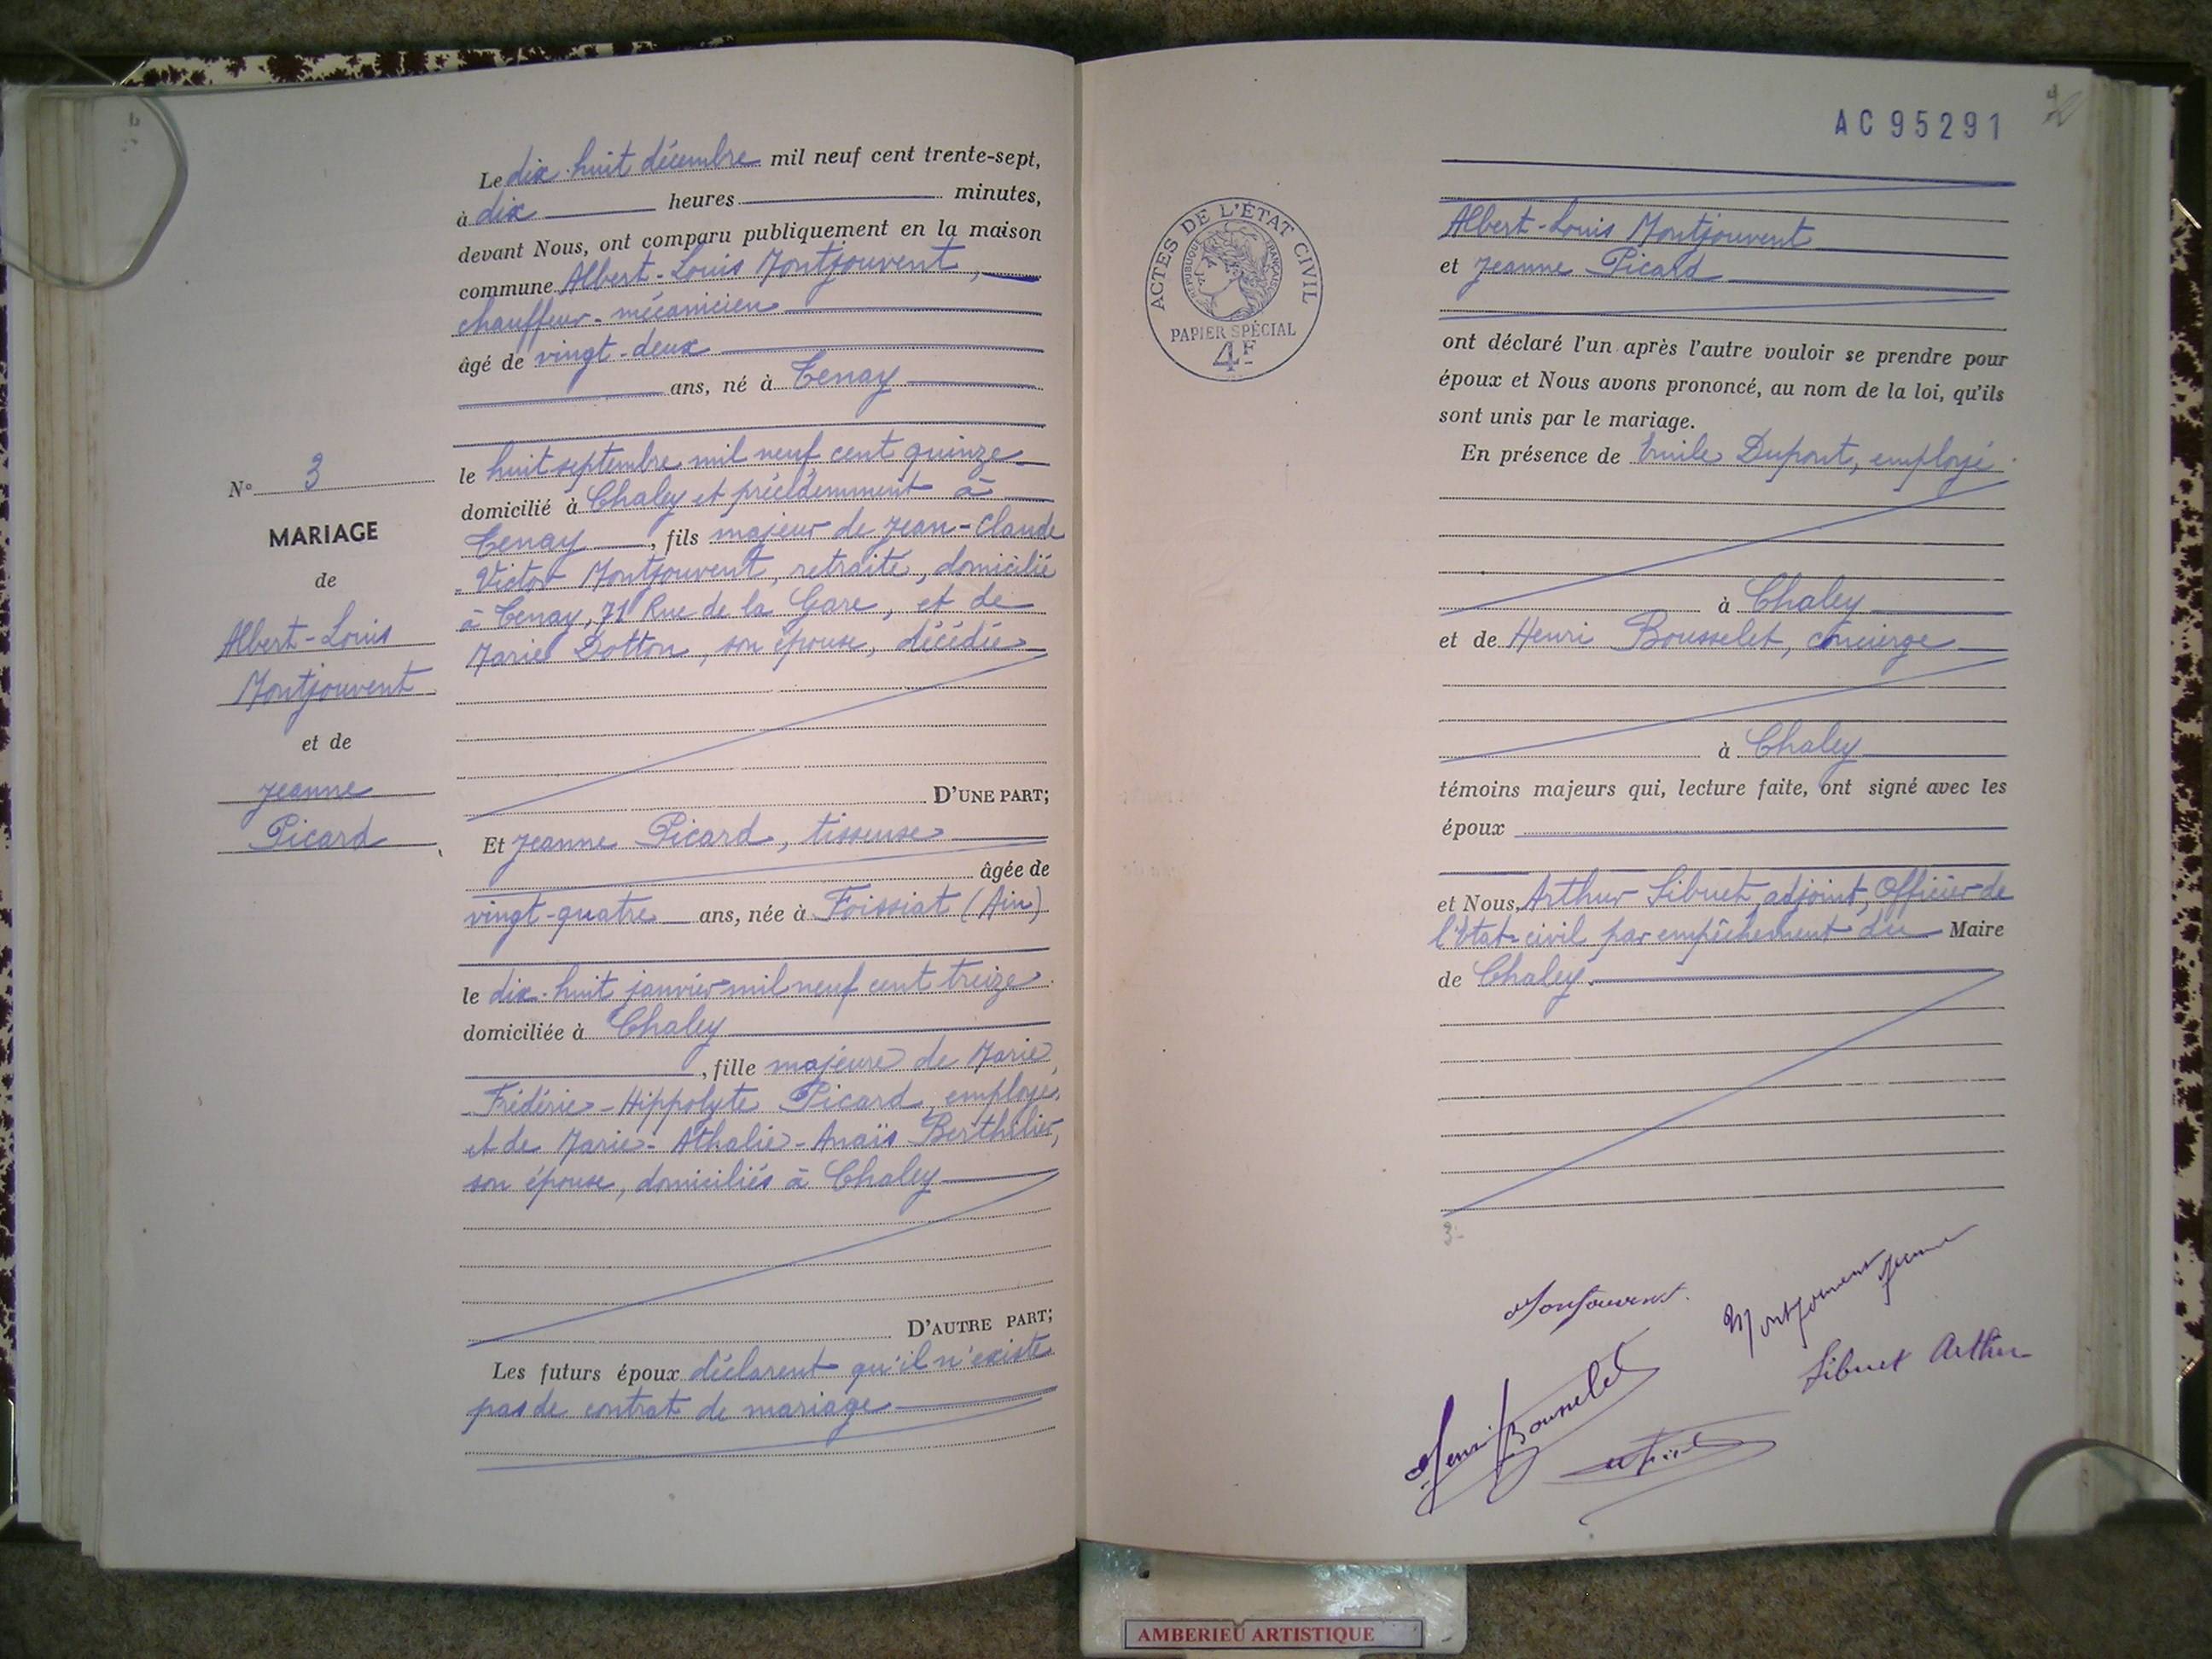 Le dix-huit décembre mil neuf cent trente-sept,
à dix heures minutes,
devant Nous, ont comparu publiquement en la maison
commune Albert-Louis Montjouvent,
chauffeur-mécanicien
âgé de vingt-deux
ans, né à Tenay
le huit septembre mil neuf cent quinze
domicilié à Chaley et précédemment à
Tenay, fils majeur de Jean-Claude
Victor Montjouvent, retraité, domicilié
à Tenay, 71 Rue de la Gare, et de
Marie Dotton, son épouse, décédée
D'UNE PART;
N° 3
MARIAGE
de
Albert-Louis
Montjouvent
et de
Jeanne
Picard
Et Jeanne Picard, tisseuse
âgée de
vingt-quatre ans, née à Foissiat (Ain)
le dix-huit janvier mil neuf cent treize
domiciliée à Chaley
, fille majeure de Marie
Frédéric-Hippolyte Picard, employé,
et de Marie-Athalie-Anaïs Berthilier,
son épouse, domiciliés à Chaley
D'AUTRE PART;
Les futurs époux déclarent qu'il n'existe
pas de contrat de mariage
AC 95291
ACTES DE L'ÉTAT CIVIL
RÉPUBLIQUE FRANÇAISE
PAPIER SPÉCIAL
4F
Albert-Louis Montjouvent
et Jeanne Picard
ont déclaré l'un après l'autre vouloir se prendre pour
époux et Nous avons prononcé, au nom de la loi, qu'ils
sont unis par le mariage.
En présence de Emile Dupont, employé
à Chaley
et de Henri Bousselet, concierge
à Chaley
témoins majeurs qui, lecture faite, ont signé avec les
époux
et Nous, Arthur Sibuet, adjoint, Officier de
l'Etat-civil par empêchement du Maire
de Chaley.
3
Montjouvent
Montjouvent Jeanne
Sibuet Arthur
Henri Bousselet
AMBERIEU ARTISTIQUE